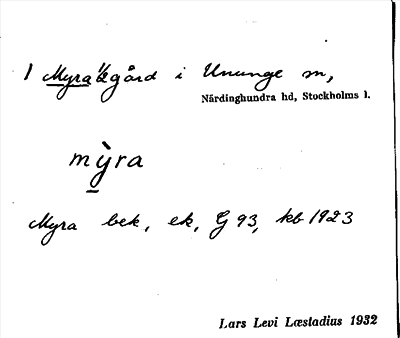 1 Myra 1/2 gård i Ununge sn,
Närdinghundra hd, Stockholms l.
mỳra
Myra bek, ek, G 93, kb 1923
Lars Levi Læstadius 1932